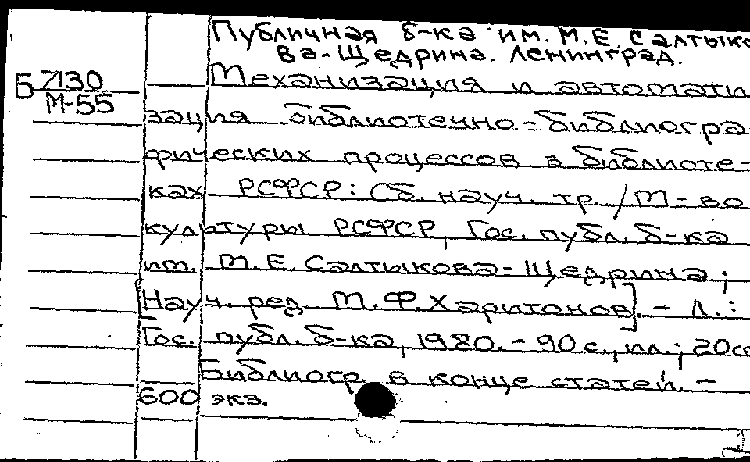 Публичная б-ка им. М.Е. Салтыко
ва-Щедрина. Ленинград.
Б 7130
М-55
Механизация и автомати
зация библиотечно-библиогра
фических процессов в библиоте-
ках РСФСР: Сб. науч. тр. / М-во
культуры РСФСР, Гос. публ. б-ка
им. М.Е. Салтыкова-Щедрина;
[Науч. ред. М.Ф. Харитонов]. - Л.:
Гос. публ. б-ка, 1980. - 90 с., ил.; 20см
Библиогр. в конце статей. -
600 экз.